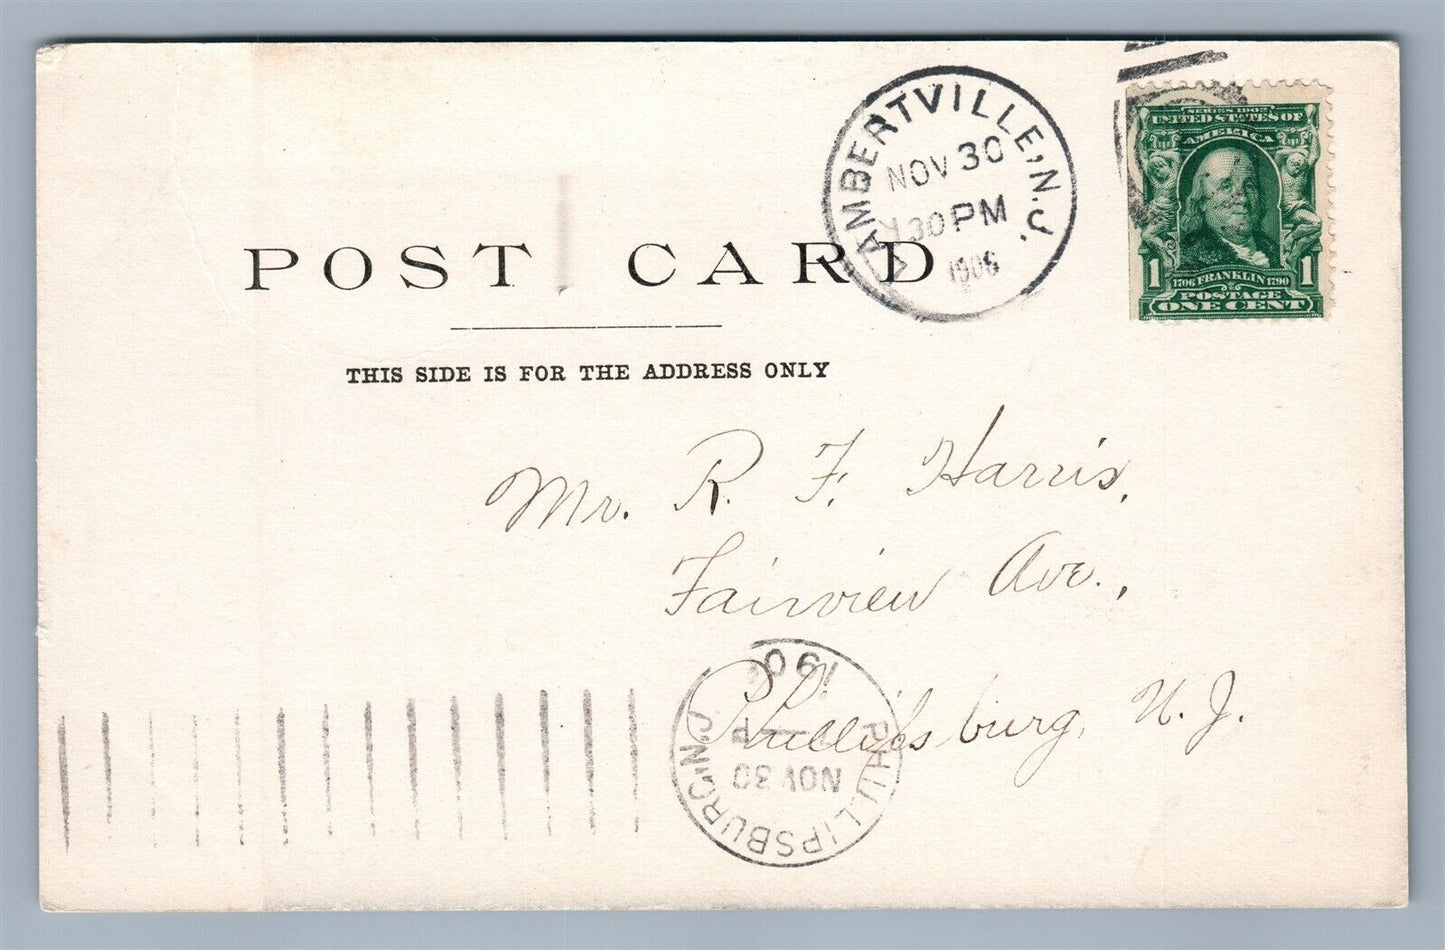 LAMBERTVILLE, N.J.
NOV 30
30 PM
1906
SERIES 1902
UNITED STATES OF
AMERICA
1 1706 FRANKLIN 1790 1
POSTAGE
ONE CENT
POST CARD
THIS SIDE IS FOR THE ADDRESS ONLY
Mr. R. F. Harris,
Fairview Ave.,
Phillipsburg, N. J.
PHILLIPSBURG, N.J.
NOV 30
190